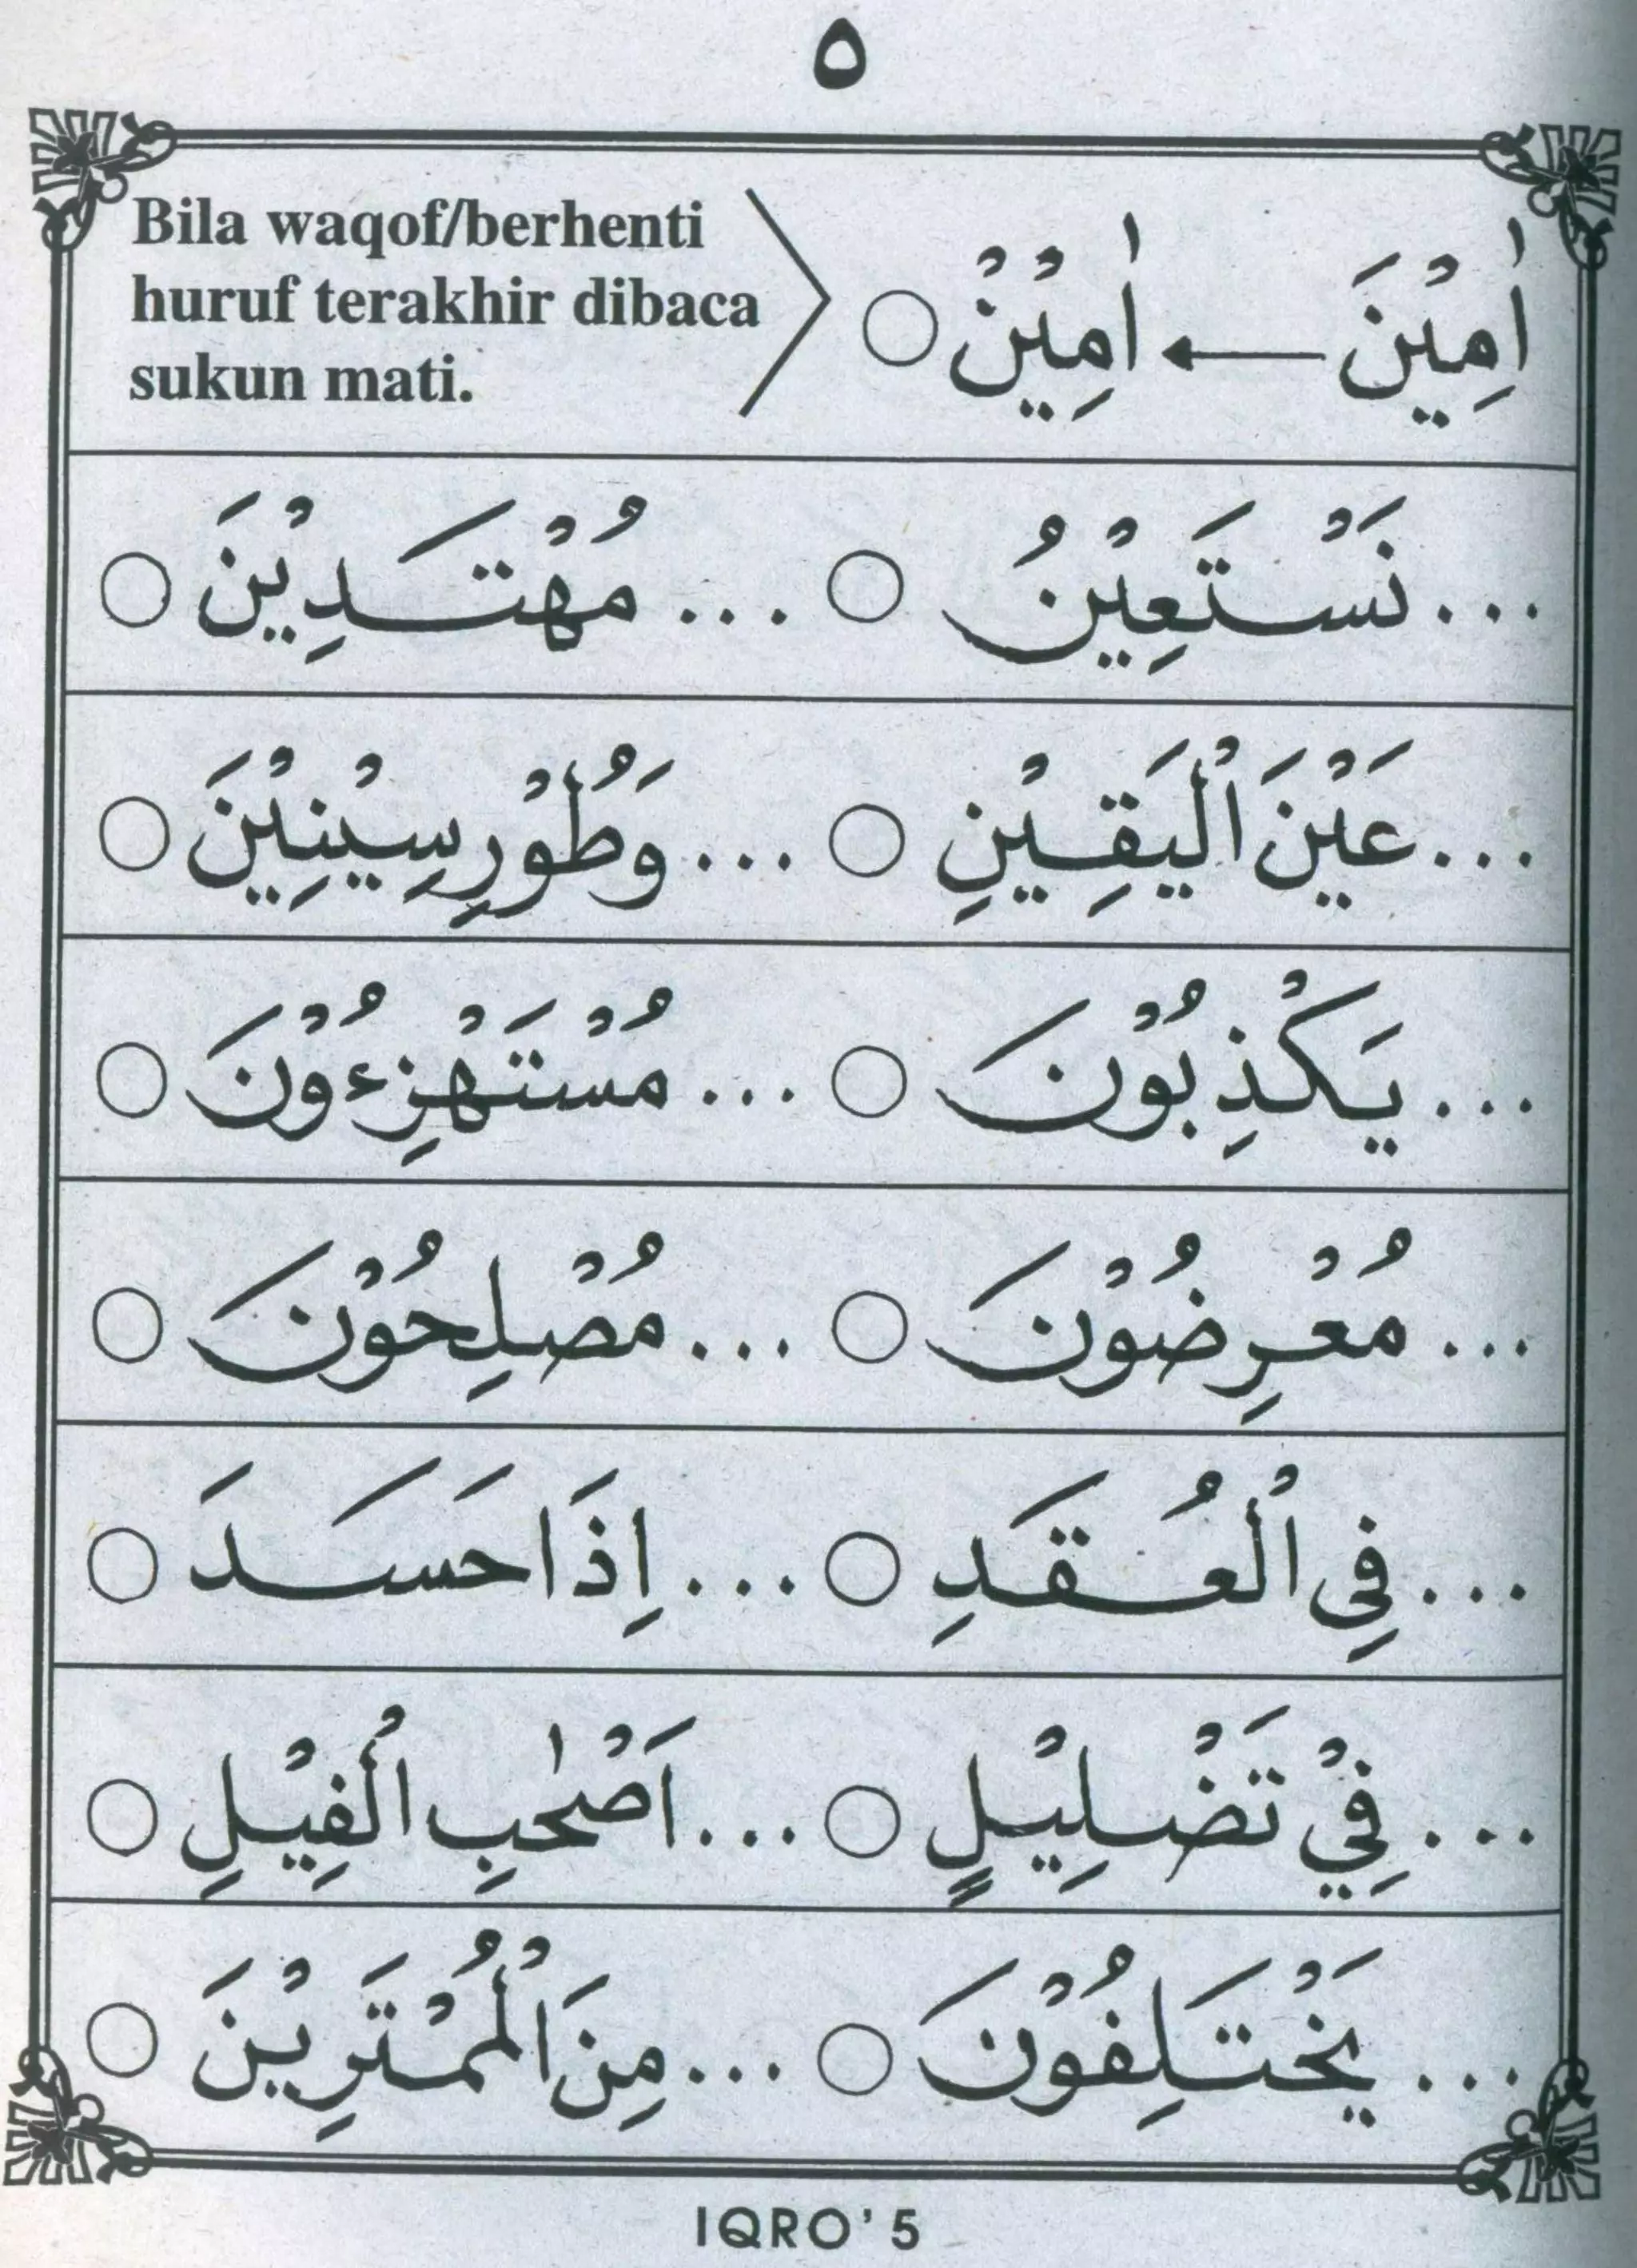 ٥
Bila waqof/berhenti
huruf terakhir dibaca
sukun mati.
اٰمِيْنَ ← اٰمِيْنْ ○
...نَسْتَعِيْنُ ○ ...مُهْتَدِيْنَ ○
...عَيْنَ الْيَقِيْنِ ○ ...وَطُوْرِ سِيْنِيْنَ ○
...يَكْذِبُوْنَ ○ ...مُسْتَهْزِءُوْنَ ○
...مُعْرِضُوْنَ ○ ...مُصْلِحُوْنَ ○
...فِى الْعُقَدِ ○ ...اِذَا حَسَدَ ○
...فِيْ تَضْلِيْلٍ ○ ...اَصْحٰبِ الْفِيْلِ ○
...يَخْتَلِفُوْنَ ○ ...مِنَ الْمُمْتَرِيْنَ ○
IQRO' 5